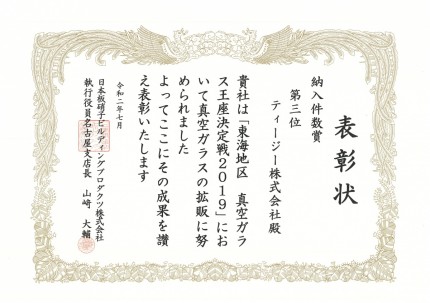 表彰状
納入件数賞
第三位
ティージー株式会社殿
貴社は「東海地区　真空ガラ
ス王座決定戦2019」にお
いて真空ガラスの拡販に努
められました
よってここにその成果を讃
え表彰いたします
令和二年七月
日本板硝子ビルディングプロダクツ株式会社
執行役員名古屋支店長　山崎　大輔